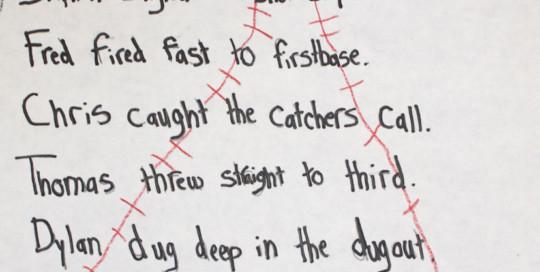 Fred fired fast to firstbase.
Chris caught the catchers call.
Thomas threw straight to third.
Dylan dug deep in the dugout.